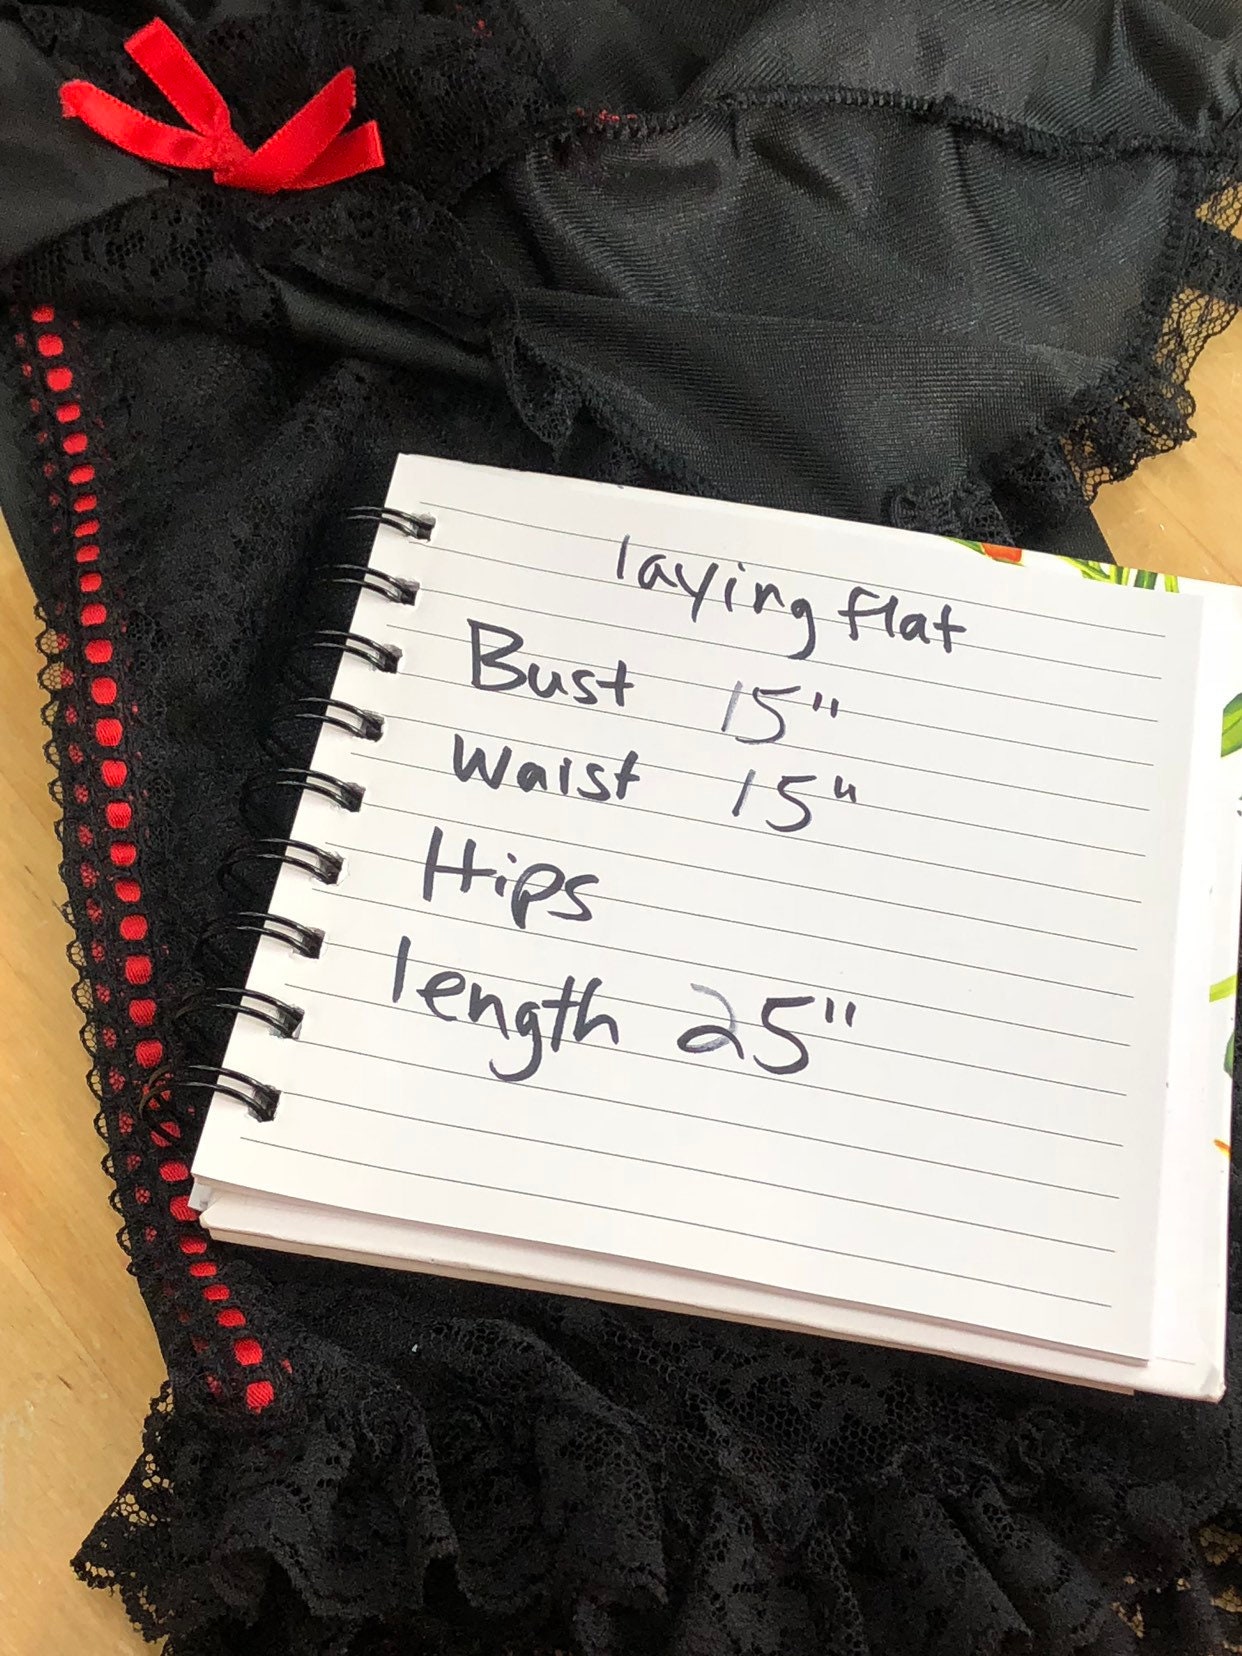 laying flat
Bust 15"
Waist 15"
Hips
length 25"